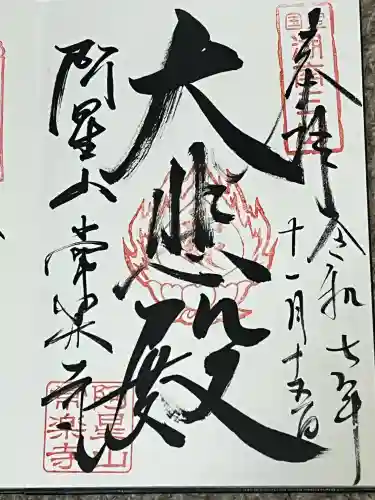 奉拝
令和七年
十一月十五日
大悲殿
阿星山
常楽寺
阿星山
常楽寺